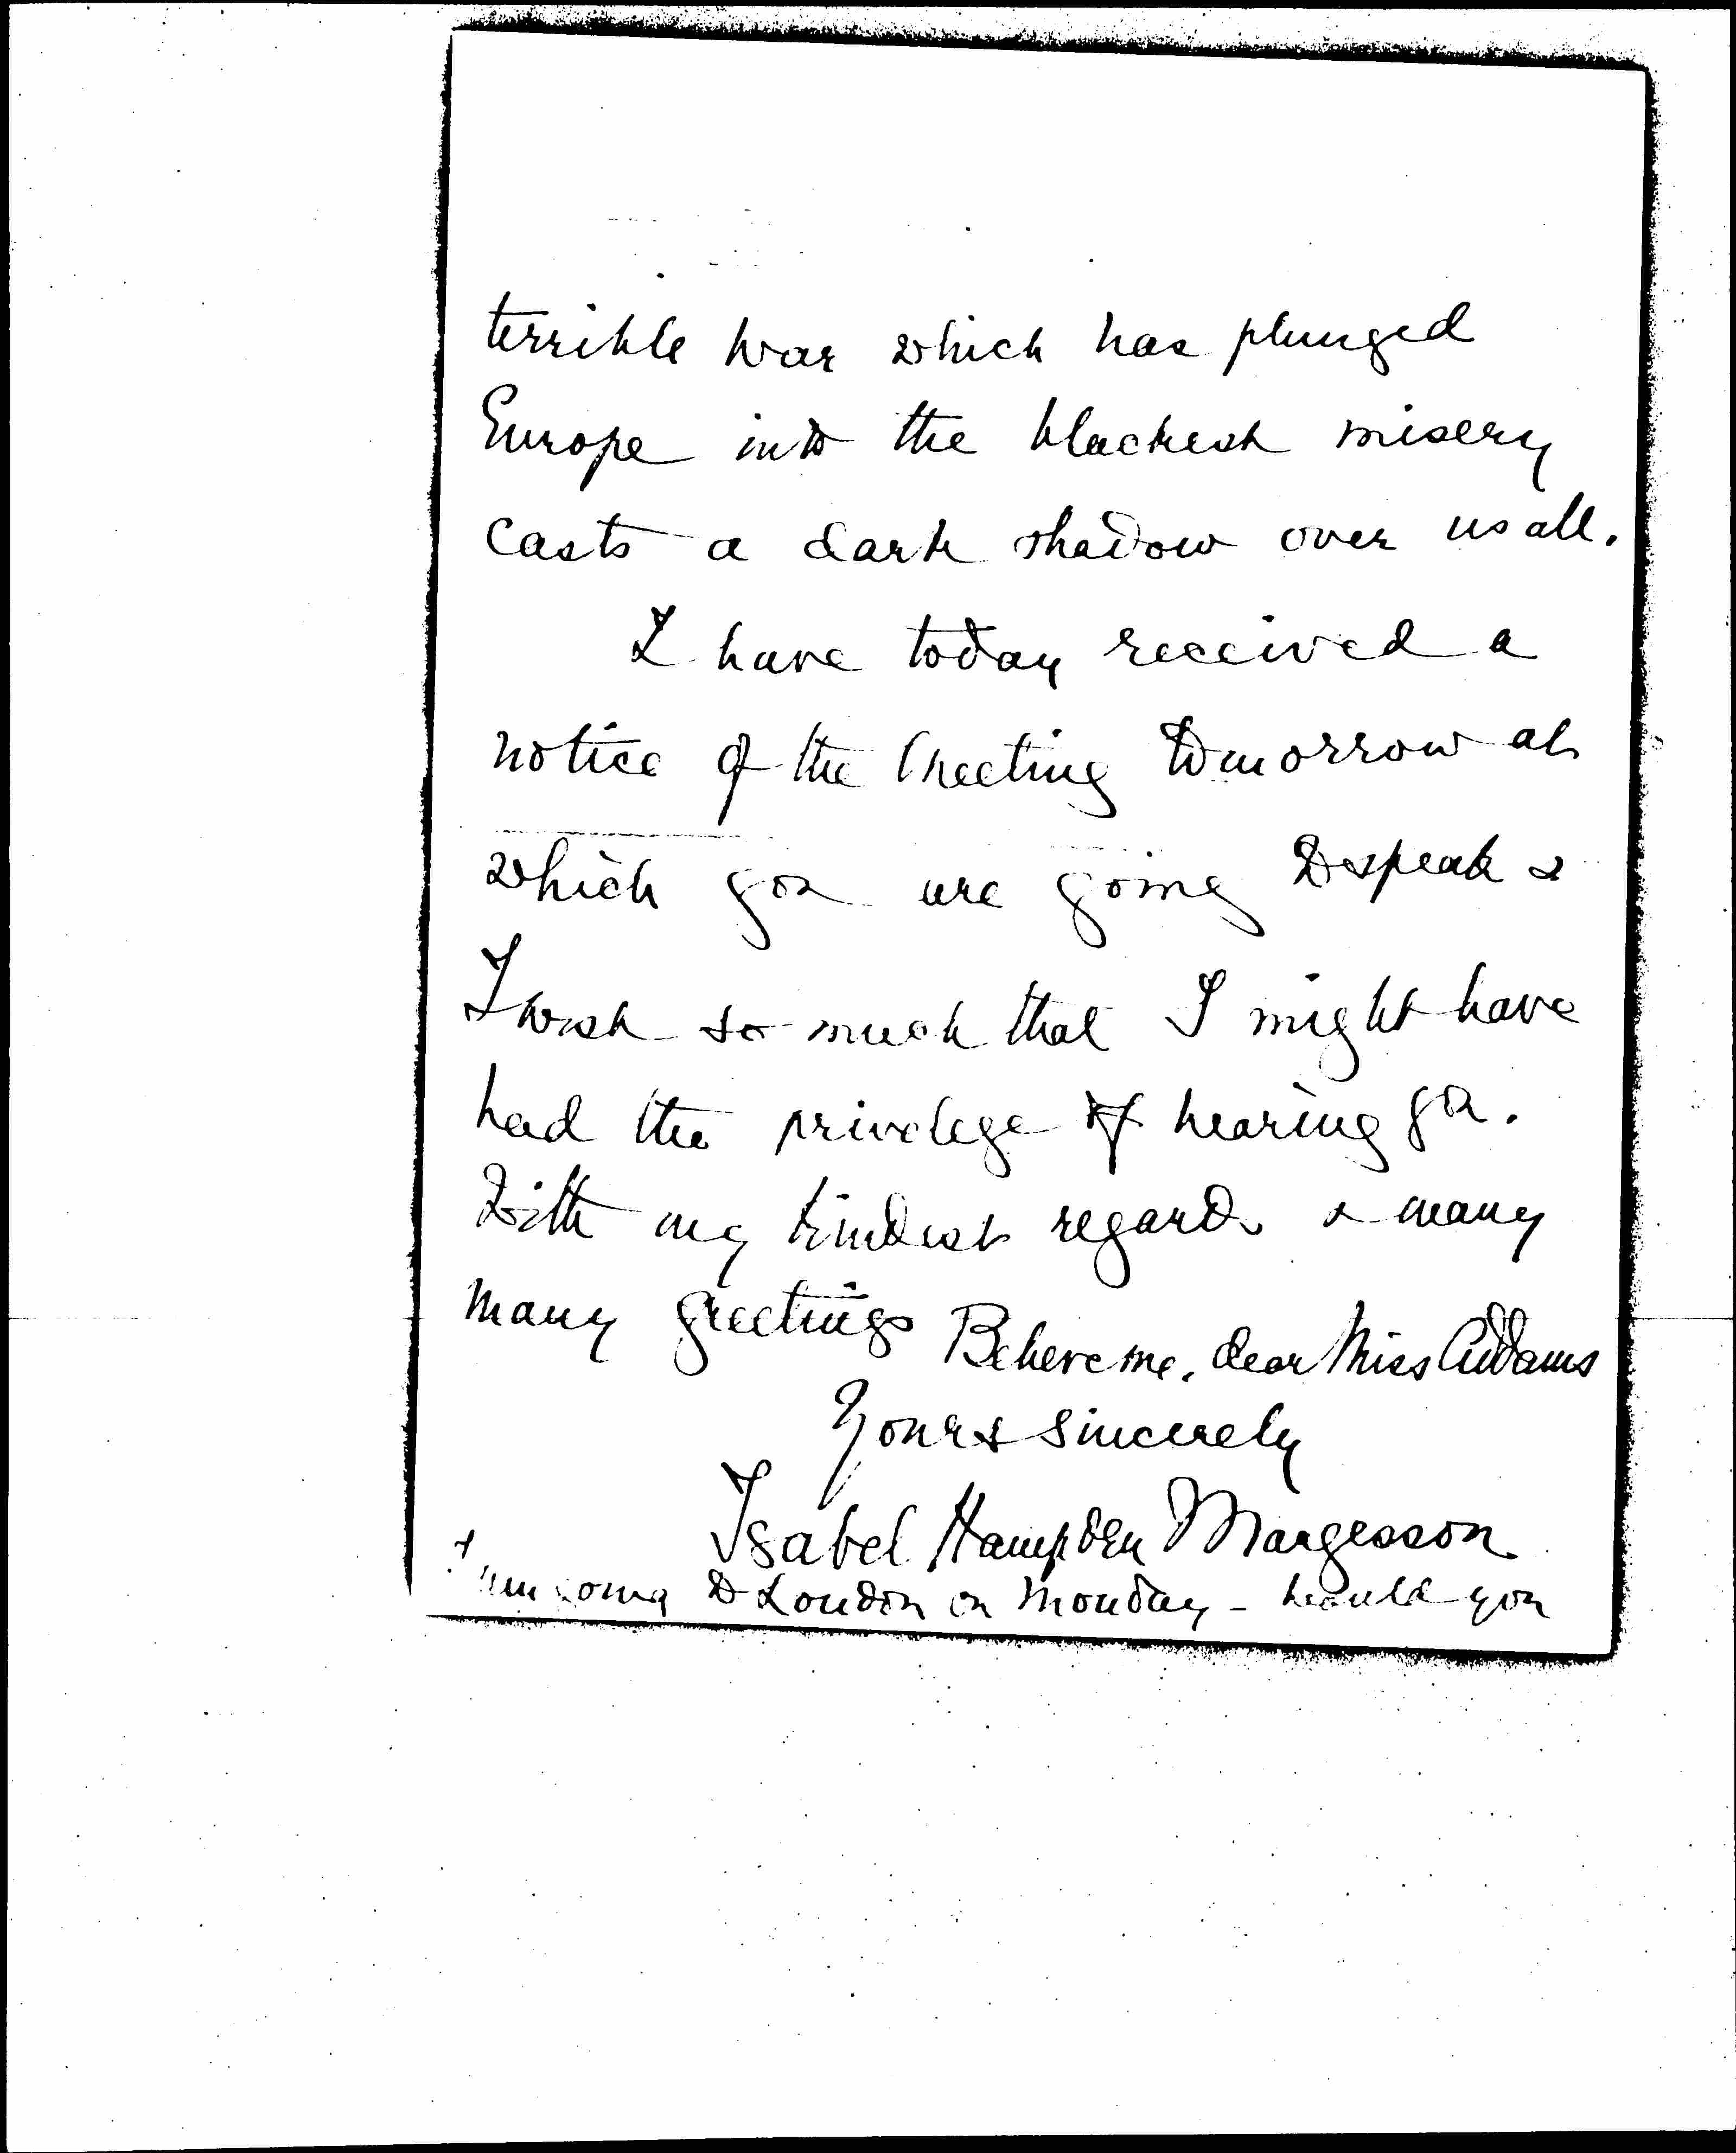 terrible war which has plunged
Europe into the blackest misery
casts a dark shadow over us all.
I have today received a
notice of the Meeting tomorrow at
which you are going to speak &
I wish so much that I might have
had the privelege of hearing you.
With my kindest regards & many
many greetings Believe me, dear Miss Addams
Yours sincerely
Isabel Hampden Margesson
I am going to London on Monday - would you